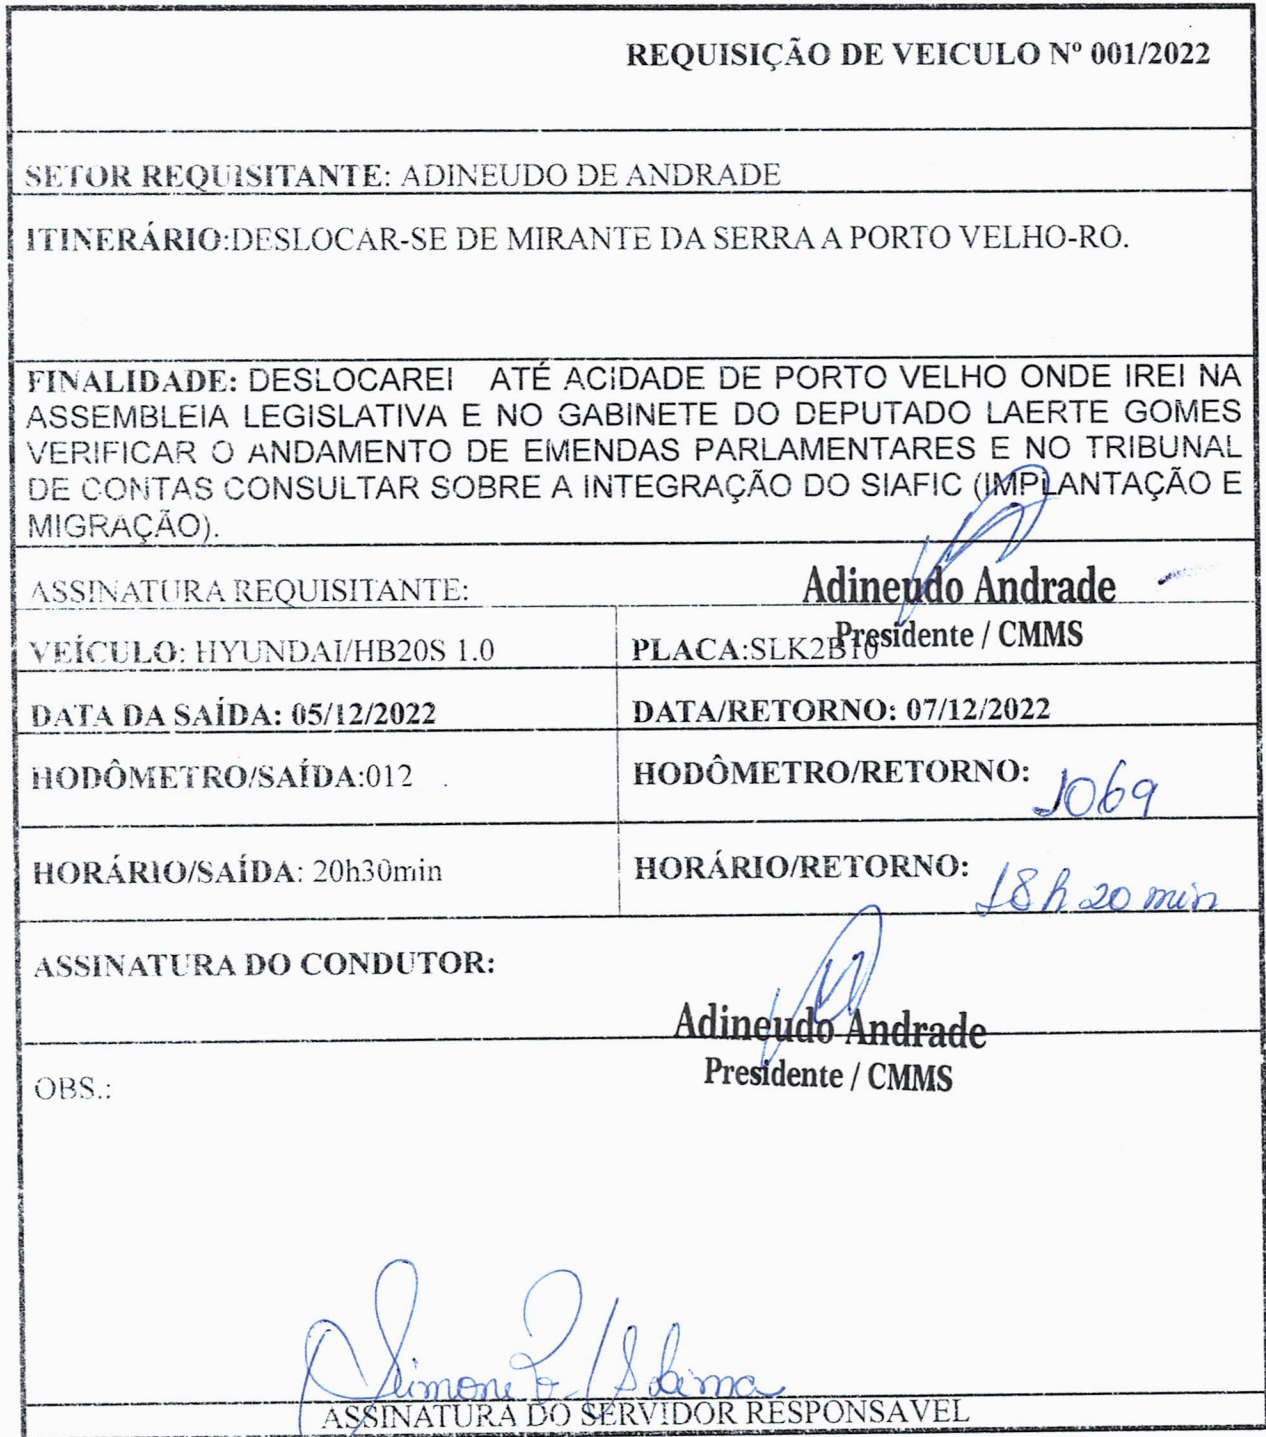 REQUISIÇÃO DE VEICULO Nº 001/2022
SETOR REQUISITANTE: ADINEUDO DE ANDRADE
ITINERÁRIO:DESLOCAR-SE DE MIRANTE DA SERRA A PORTO VELHO-RO.
FINALIDADE: DESLOCAREI ATÉ ACIDADE DE PORTO VELHO ONDE IREI NA
ASSEMBLEIA LEGISLATIVA E NO GABINETE DO DEPUTADO LAERTE GOMES
VERIFICAR O ANDAMENTO DE EMENDAS PARLAMENTARES E NO TRIBUNAL
DE CONTAS CONSULTAR SOBRE A INTEGRAÇÃO DO SIAFIC (IMPLANTAÇÃO E
MIGRAÇÃO).
ASSINATURA REQUISITANTE: Adineudo Andrade
Presidente / CMMS
VEÍCULO: HYUNDAI/HB20S 1.0 PLACA:SLK2B10
DATA DA SAÍDA: 05/12/2022 DATA/RETORNO: 07/12/2022
HODÔMETRO/SAÍDA:012 HODÔMETRO/RETORNO: 1069
HORÁRIO/SAÍDA: 20h30min HORÁRIO/RETORNO: 18h 20 min
ASSINATURA DO CONDUTOR:
Adineudo Andrade
Presidente / CMMS
OBS.:
Simone
ASSINATURA DO SERVIDOR RESPONSAVEL